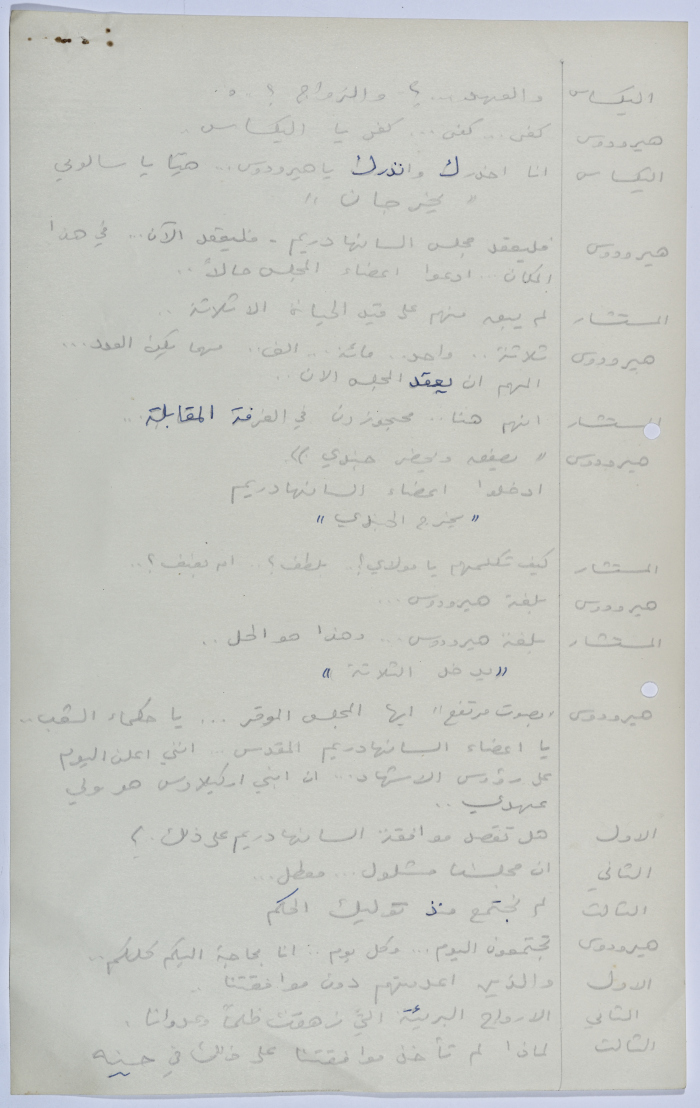 اليكساس والعهد...؟ والزواج؟..
هيرودوس كفى.. كفى... كفى يا اليكساس..
اليكساس انا احذرك وانذرك يا هيرودوس.. هيّا يا سالومي
" يخرجان "
هيرودوس فليعقد مجلس السانهادريم - فليعقد الآن... في هذا
المكان.. ادعوا اعضاء المجلس حالاً..
المستشار لم يبق منهم على قيد الحياة الا ثلاثة..
هيرودوس ثلاثة.. واحد.. مائة... الف.. مهما يكن العدد...
المهم ان يعقد المجلس الان..
المستشار انهم هنا.. محجوزون في الغرفة المقابلة..
هيرودوس " يصفق ويحضر جندي "
ادخلوا اعضاء السانهادريم
" يخرج الجندي "
المستشار كيف تكلمهم يا مولاي!.. بلطف؟.. ام بعنف؟..
هيرودوس بلغة هيرودوس...
المستشار بلغة هيرودوس... وهذا هو الحل..
" يدخل الثلاثة "
هيرودوس "بصوت مرتفع" ايها المجلس الموقر... يا حكماء الشعب..
يا اعضاء السانهادريم المقدس.. انني اعلن اليوم
على رؤوس الاشهاد... ان ابني اركيلاوس هو ولي
عهدي..
الاول هل تقصد موافقة السانهادريم على ذلك.؟
الثاني ان مجلسنا مشلول... معطل...
الثالث لم نجتمع منذ توليك الحكم
هيرودوس تجتمعون اليوم... وكل يوم.. انا بحاجة اليكم كلكم..
الاول والذين اعدمتهم دون موافقتنا..
الثاني الارواح البريئة التي زهقت ظلماً وعدوانا.
الثالث لماذا لم تأخذ موافقتنا على ذلك في حينه